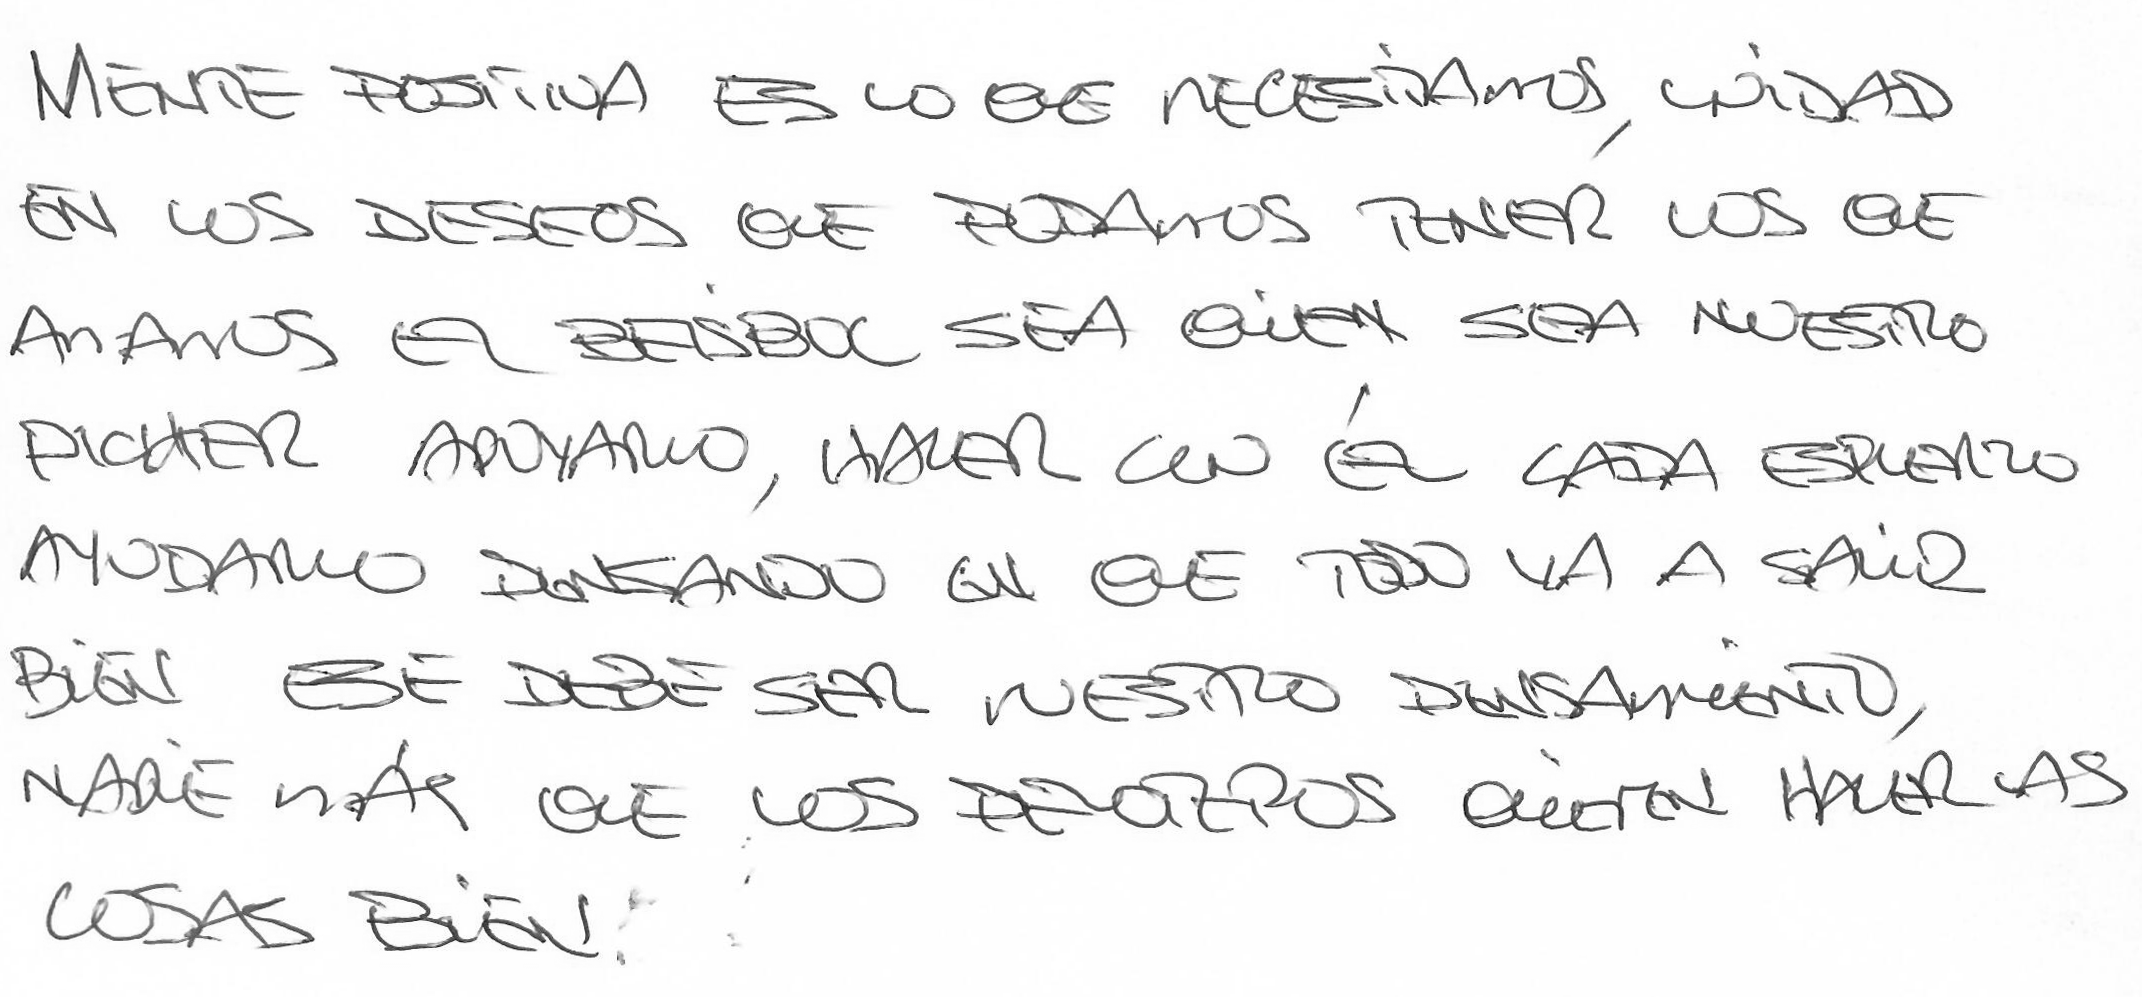 MENTE POSITIVA ES LO QUE NECESITAMOS, UNIDAD
EN LOS DESEOS QUE PODAMOS TENER LOS QUE
AMAMOS EL BEISBOL SEA QUIEN SEA NUESTRO
PICHER APOYARLO, HACER CON ÉL CADA ESFUERZO
AYUDARLO PENSANDO EN QUE TODO VA A SALIR
BIEN ESE DEBE SER NUESTRO PENSAMIENTO,
NADIE MÁS QUE LOS PELOTEROS QUIEREN HACER LAS
COSAS BIEN.